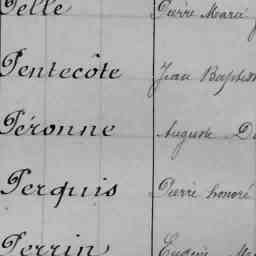 Pelle Pierre Marie
Pentecôte Jean Baptist
Péronne Auguste
Perquis Pierre honoré
Perrin Eugène